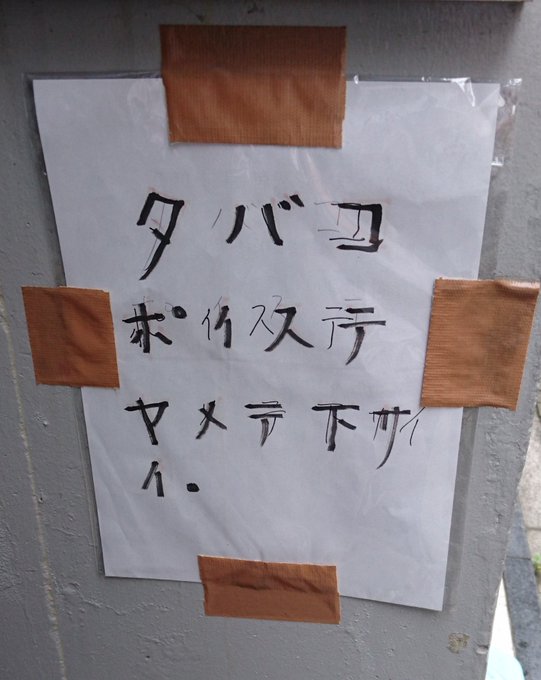 タバコ
ポイステ
ヤメテ下サ
イ.